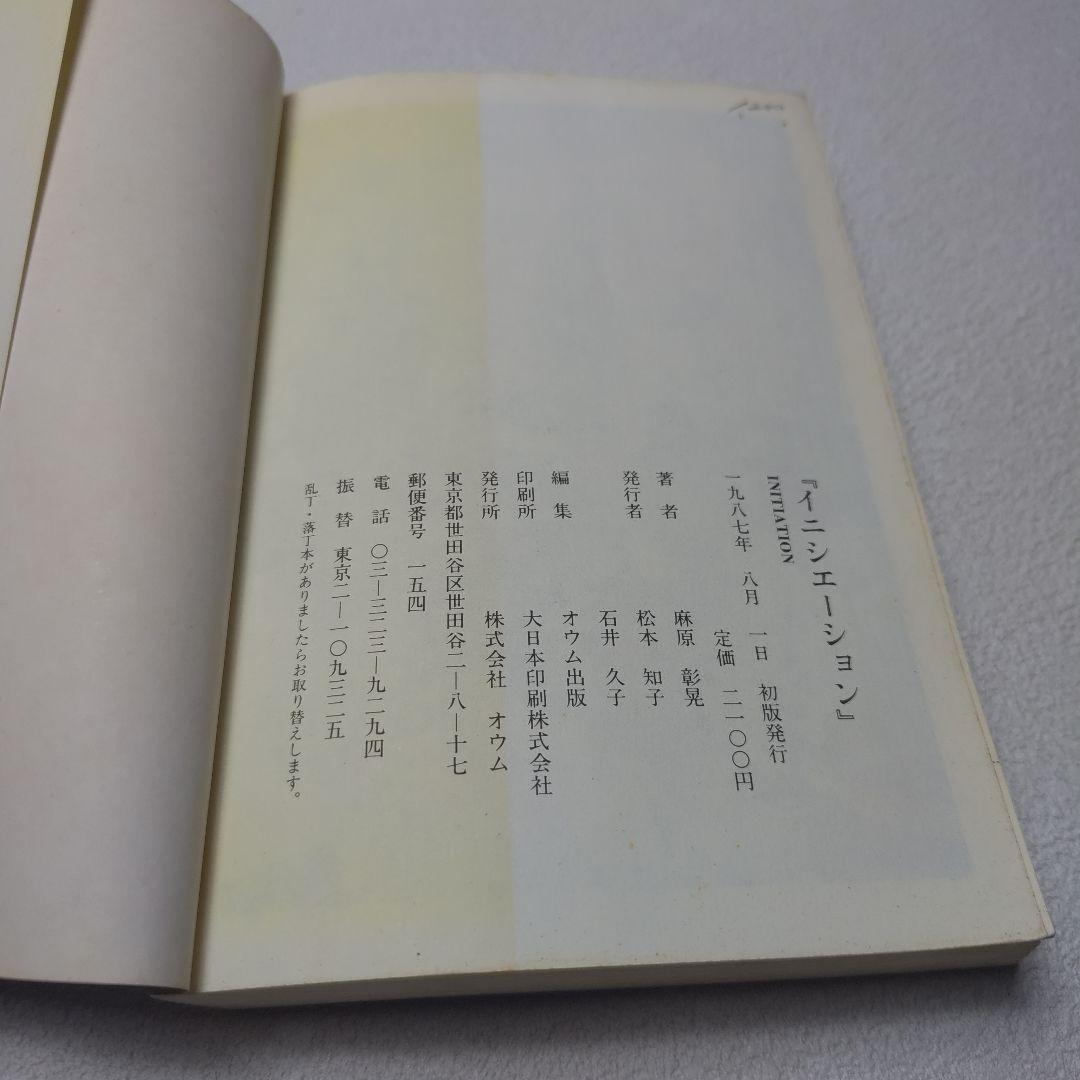 『イニシエーション』
INITIATION
一九八七年 八月 一日 初版発行
定価 二一〇〇円
著者 麻原 彰晃
発行者 松本 知子
石井 久子
編集 オウム出版
印刷所 大日本印刷株式会社
発行所 株式会社 オウム
東京都世田谷区世田谷二—八—十七
郵便番号 一五四
電話 〇三—三二三—九二九四
振替 東京二—一〇九三二五
乱丁・落丁本がありましたらお取り替えします。